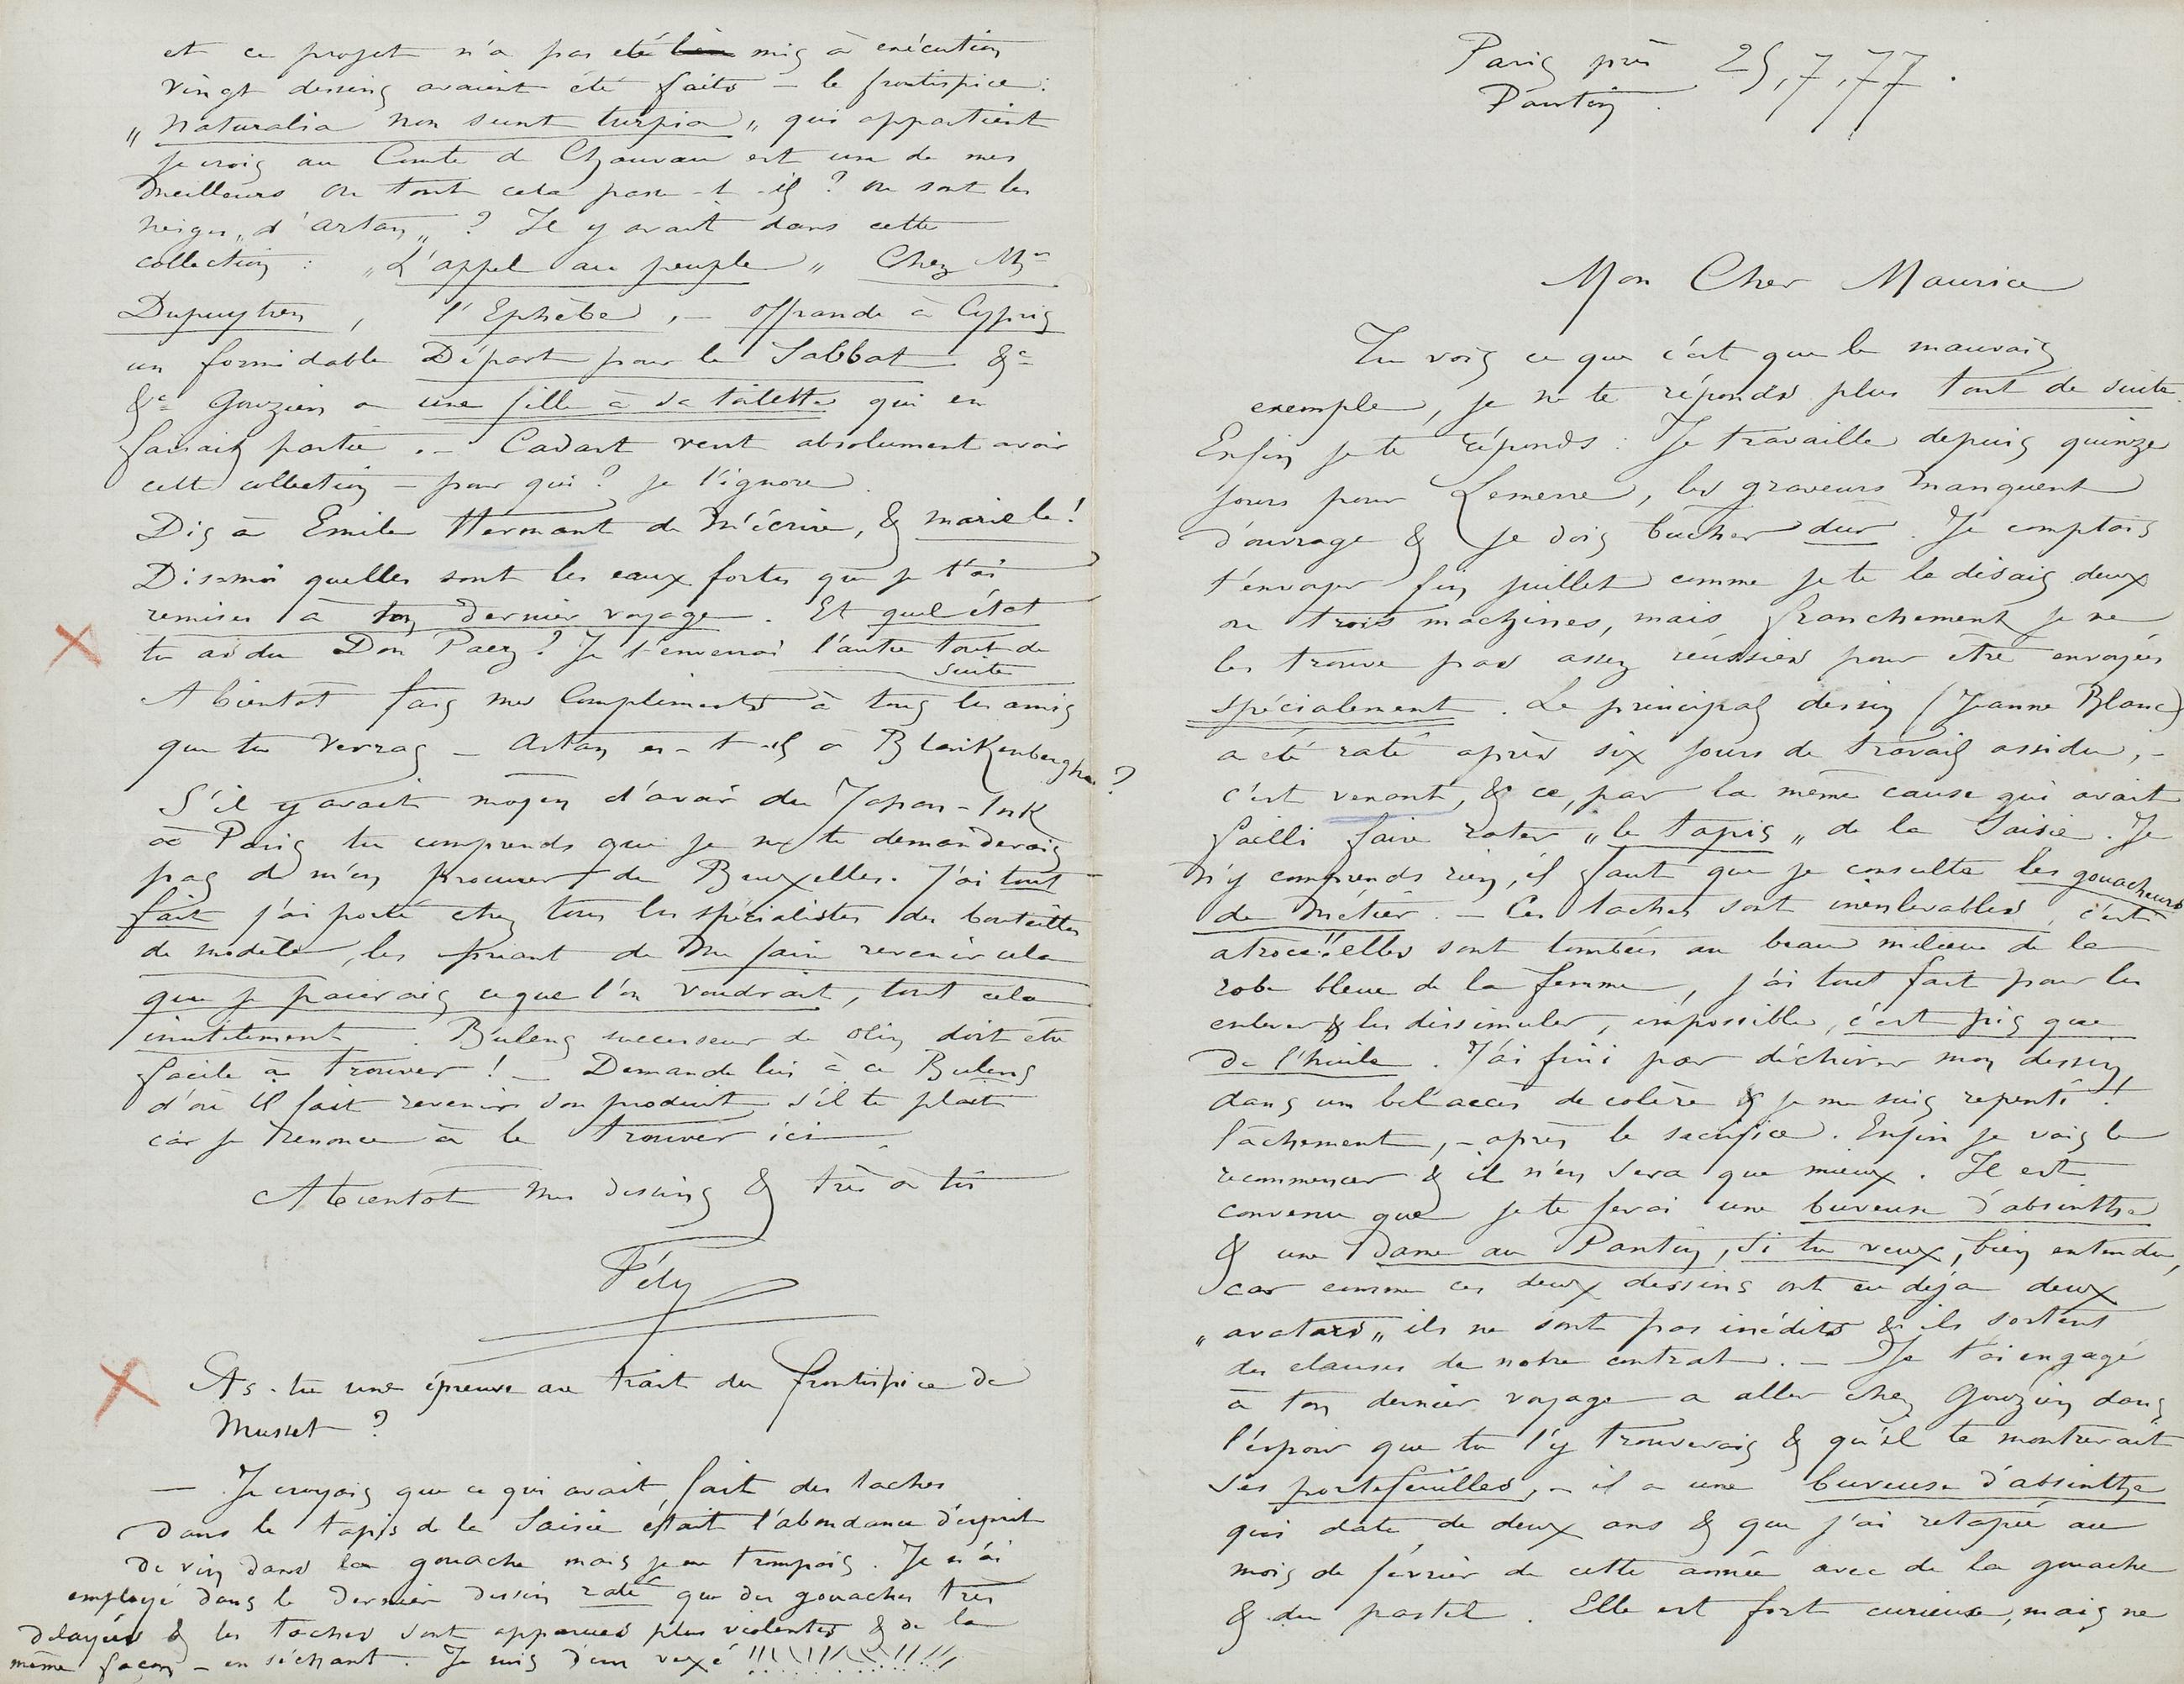 et ce projet n'a pas été bien mis à exécution
vingt dessins avaient été faits – le frontispice :
„ Naturalia non sunt turpia „ qui appartient
je crois au Comte de Chauvau est un de mes
meilleurs Où tout cela passe-t-il ? où sont les
neiges „ d'artan „ ? Il y avait dans cette
collection : „ L'appel au peuple „ Chez Mr
Dupuytren , l'Ephèbe , – offrande à Cypris
un formidable Départ pour le Sabbat &c
&c Gouzien a une fille à sa toilette qui en
faisait partie . – Cadart veut absolument avoir
cette collection – pour qui ? je l'ignore .
Dis à Emile Hermant de m'écrire, & marie le !
Dis-moi quelles sont les eaux fortes que je t'ai
remises à ton dernier voyage . Et quel état
tu as du Don Paez ? Je t'enverrai l'autre tout de
suite
A bientôt fais mes Compliments à tous les amis
que tu verras – Artan es-t-il à Blankenberghe ?
S'il y avait moyen d'avoir du Japan-Ink
à Paris tu comprends que je ne te demanderais
pas de m'en procurer de Bruxelles. J'ai tout
fait j'ai porté chez tous les spécialistes des bouteilles
de modèle, les priant de me faire revenir cela
que je paierais ce que l'on voudrait, tout cela
inutilement . Buleng successeur de Olin doit être
facile à trouver ! – Demande lui à ce Buleng
d'où il fait revenir son produit s'il te plait
car je renonce à le trouver ici .
A bientôt mes dessins & très à toi
Fély
As-tu une épreuve au trait du frontispice de
Musset ?
– Je croyais que ce qui avait fait des taches
dans le tapis de la Saisie était l'abondance d'esprit
de vin dans la gouache mais je me trompais. Je n'ai
employé dans le dernier dessin raté que des gouaches très
délayées & les taches sont apparues plus violentes & de la
même façon – en séchant. Je suis d'un vexé !!!!!!!!!!!!!!
Paris près 25,7,77.
Pantin .
Mon Cher Maurice
Tu vois ce que c'est que le mauvais
exemple, je ne te réponds plus tout de suite.
Enfin je te réponds : Je travaille depuis quinze
jours pour Lemerre, les graveurs manquent
d'ouvrage & je dois bûcher dur . Je comptais
t'envoyer fin juillet comme je te le disais deux
ou trois machines, mais franchement je ne
les trouve pas assez réussies pour être envoyées
spécialement . Le principal dessin (Jeanne Blanc)
a été raté après six jours de travail assidu, –
c'est navrant, & ce, par la même cause qui avait
failli faire rater „ le tapis „ de la Saisie. Je
n'y comprends rien, il faut que je consulte les gouacheurs
de métier. – Ces taches sont inenlevables, c'est
atroce !! elles sont tombées au beau milieu de la
robe bleue de la femme, j'ai tout fait pour les
enlever & les dissimuler, impossible, c'est pis que
de l'huile . J'ai fini par déchirer mon dessin,
dans un bel accès de colère & je me suis repenti !
lâchement, – après le sacrifice. Enfin je vais le
recommencer & il n'en sera que mieux. Il est
convenu que je te ferai une buveuse d'absinthe
& une Dame au Pantin, si tu veux, bien entendu,
car comme ces deux dessins ont eu déja deux
„ avatars „ ils ne sont pas inédits & ils sortent
des clauses de notre contrat. – Je t'ai engagé
à ton dernier voyage a aller chez Gouzien dans
l'espoir que tu l'y trouverais & qu'il te montrerait
ses portefeuilles, – il a une buveuse d'absinthe
qui date de deux ans & que j'ai retapée au
mois de février de cette année avec de la gouache
& du pastel . Elle est fort curieuse, mais ne